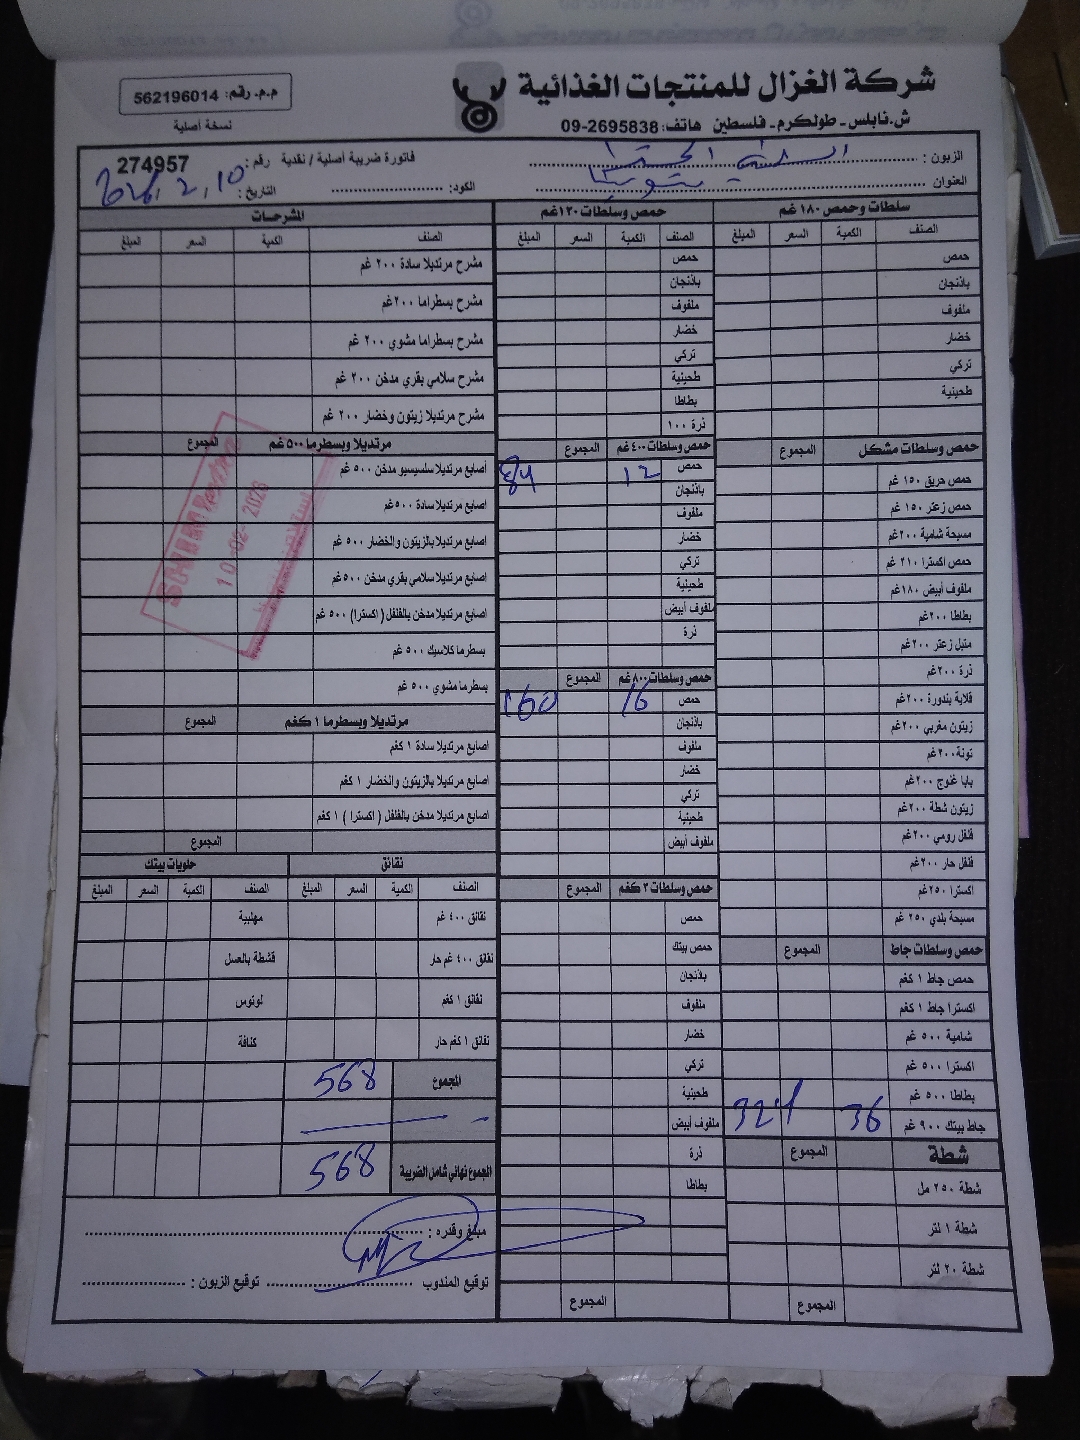 شركة الغزال للمنتجات الغذائية
م.م. رقم: 562196014
ش.نابلس - طولكرم - فلسطين هاتف: 2695838-09
نسخة أصلية
الزبون :
فاتورة ضريبة أصلية / نقدية رقم: 274957
العنوان
الكود:
التاريخ : 2026, 2, 10
سلطات وحمص ١٨٠ غم
الصنف الكمية السعر المبلغ
حمص
باذنجان
ملفوف
خضار
تركي
طحينية
حمص وسلطات مشكل المجموع
حمص حريق ١٥٠ غم
حمص زعتر ١٥٠ غم
مسبحة شامية ٢٠٠غم
حمص اكسترا ٢١٠ غم
ملفوف أبيض ١٨٠غم
بطاطا ٢٠٠غم
متبل زعتر ٢٠٠غم
ذرة ٢٠٠غم
قلاية بندورة ٢٠٠غم
زيتون مغربي ٢٠٠غم
تونة ٢٠٠غم
بابا غنوج ٢٠٠غم
زيتون شطة ٢٠٠غم
فلفل رومي ٢٠٠غم
فلفل حار ٢٠٠غم
اكسترا ٢٥٠غم
مسبحة بلدي ٢٥٠ غم
حمص وسلطات جاط المجموع
حمص جاط ١ كغم
اكسترا جاط ١ كغم
شامية ٥٠٠ غم
اكسترا ٥٠٠ غم
بطاطا ٥٠٠ غم
جاط بيتك ٩٠٠ غم 36 324
شطة المجموع
شطة ٢٥٠ مل
شطة ١ لتر
شطة ٢٠ لتر
المجموع
حمص وسلطات ١٢٠غم
الصنف الكمية السعر المبلغ
حمص
باذنجان
ملفوف
خضار
تركي
طحينية
بطاطا
ذرة ١٠٠
حمص وسلطات ٤٠٠غم المجموع
حمص ١٢ 84
باذنجان
ملفوف
خضار
تركي
طحينية
ملفوف أبيض
ذرة
حمص وسلطات ٨٠٠غم المجموع
حمص 16 160
باذنجان
ملفوف
خضار
تركي
طحينية
ملفوف أبيض
حمص وسلطات ٣ كغم المجموع
حمص
حمص بيتك
باذنجان
ملفوف
خضار
تركي
طحينية
ملفوف أبيض
ذرة
بطاطا
المجموع
المشرحات
الصنف الكمية السعر المبلغ
مشرح مرتديلا سادة ٢٠٠ غم
مشرح بسطراما ٢٠٠غم
مشرح بسطراما مشوي ٢٠٠ غم
مشرح سلامي بقري مدخن ٢٠٠ غم
مشرح مرتديلا زيتون وخضار ٢٠٠ غم
مرتديلا وبسطرما ٥٠٠ غم المجموع
اصابع مرتديلا سلسيسيو مدخن ٥٠٠ غم
اصابع مرتديلا سادة ٥٠٠غم
اصابع مرتديلا بالزيتون والخضار ٥٠٠ غم
اصابع مرتديلا سلامي بقري مدخن ٥٠٠غم
اصابع مرتديلا مدخن بالفلفل ( اكسترا ) ٥٠٠ غم
بسطرما كلاسيك ٥٠٠ غم
بسطرما مشوي ٥٠٠ غم
10-02-2026
مرتديلا وبسطرما ١ كغم المجموع
اصابع مرتديلا سادة ١ كغم
اصابع مرتديلا بالزيتون والخضار ١ كغم
اصابع مرتديلا مدخن بالفلفل ( اكسترا ) ١ كغم
المجموع
نقانق حلويات بيتك
الصنف الكمية السعر المبلغ الصنف الكمية السعر المبلغ
نقانق ٤٠٠ غم مهلبية
نقانق ٤٠٠ غم حار قشطة بالعسل
نقانق ١ كغم لوتوس
نقانق ١ كغم حار كنافة
المجموع 568
المجموع نهائي شامل الضريبة 568
مبلغ وقدره :
توقيع المندوب توقيع الزبون :